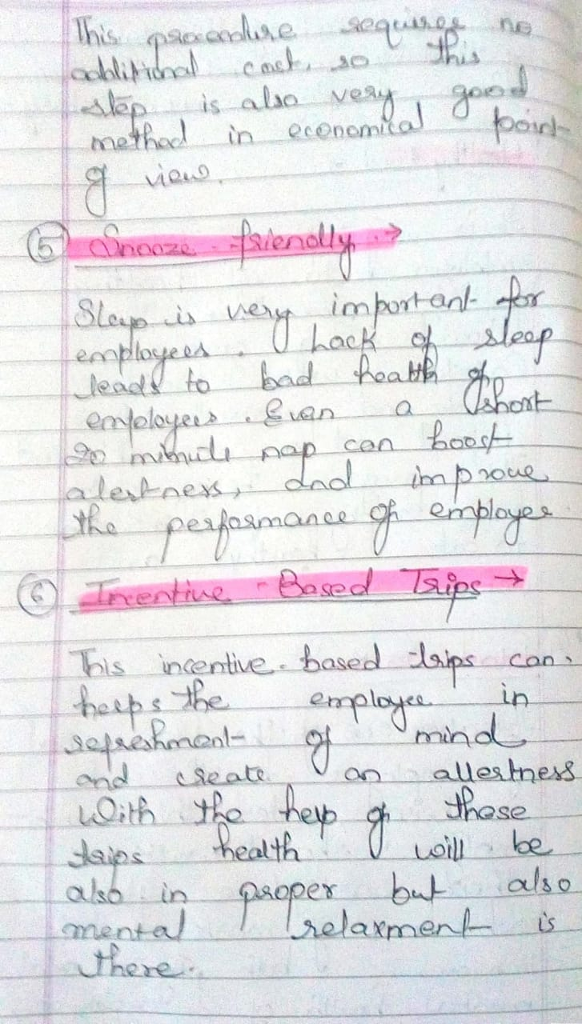 This procedure requires no
additional cost, so this
step is also very good
method in economical point
of view.
⑤ Snooze-friendly →
Sleep is very important for
employees. Lack of sleep
leads to bad health of
employees. Even a short
20 minute nap can boost
alertness, and improve
the performance of employee
⑥ Incentive-Based Trips →
This incentive-based trips can
helps the employee in
refreshment of mind
and create an allertness
With the help of these
trips health will be
also in proper but also
mental relaxment is
there.